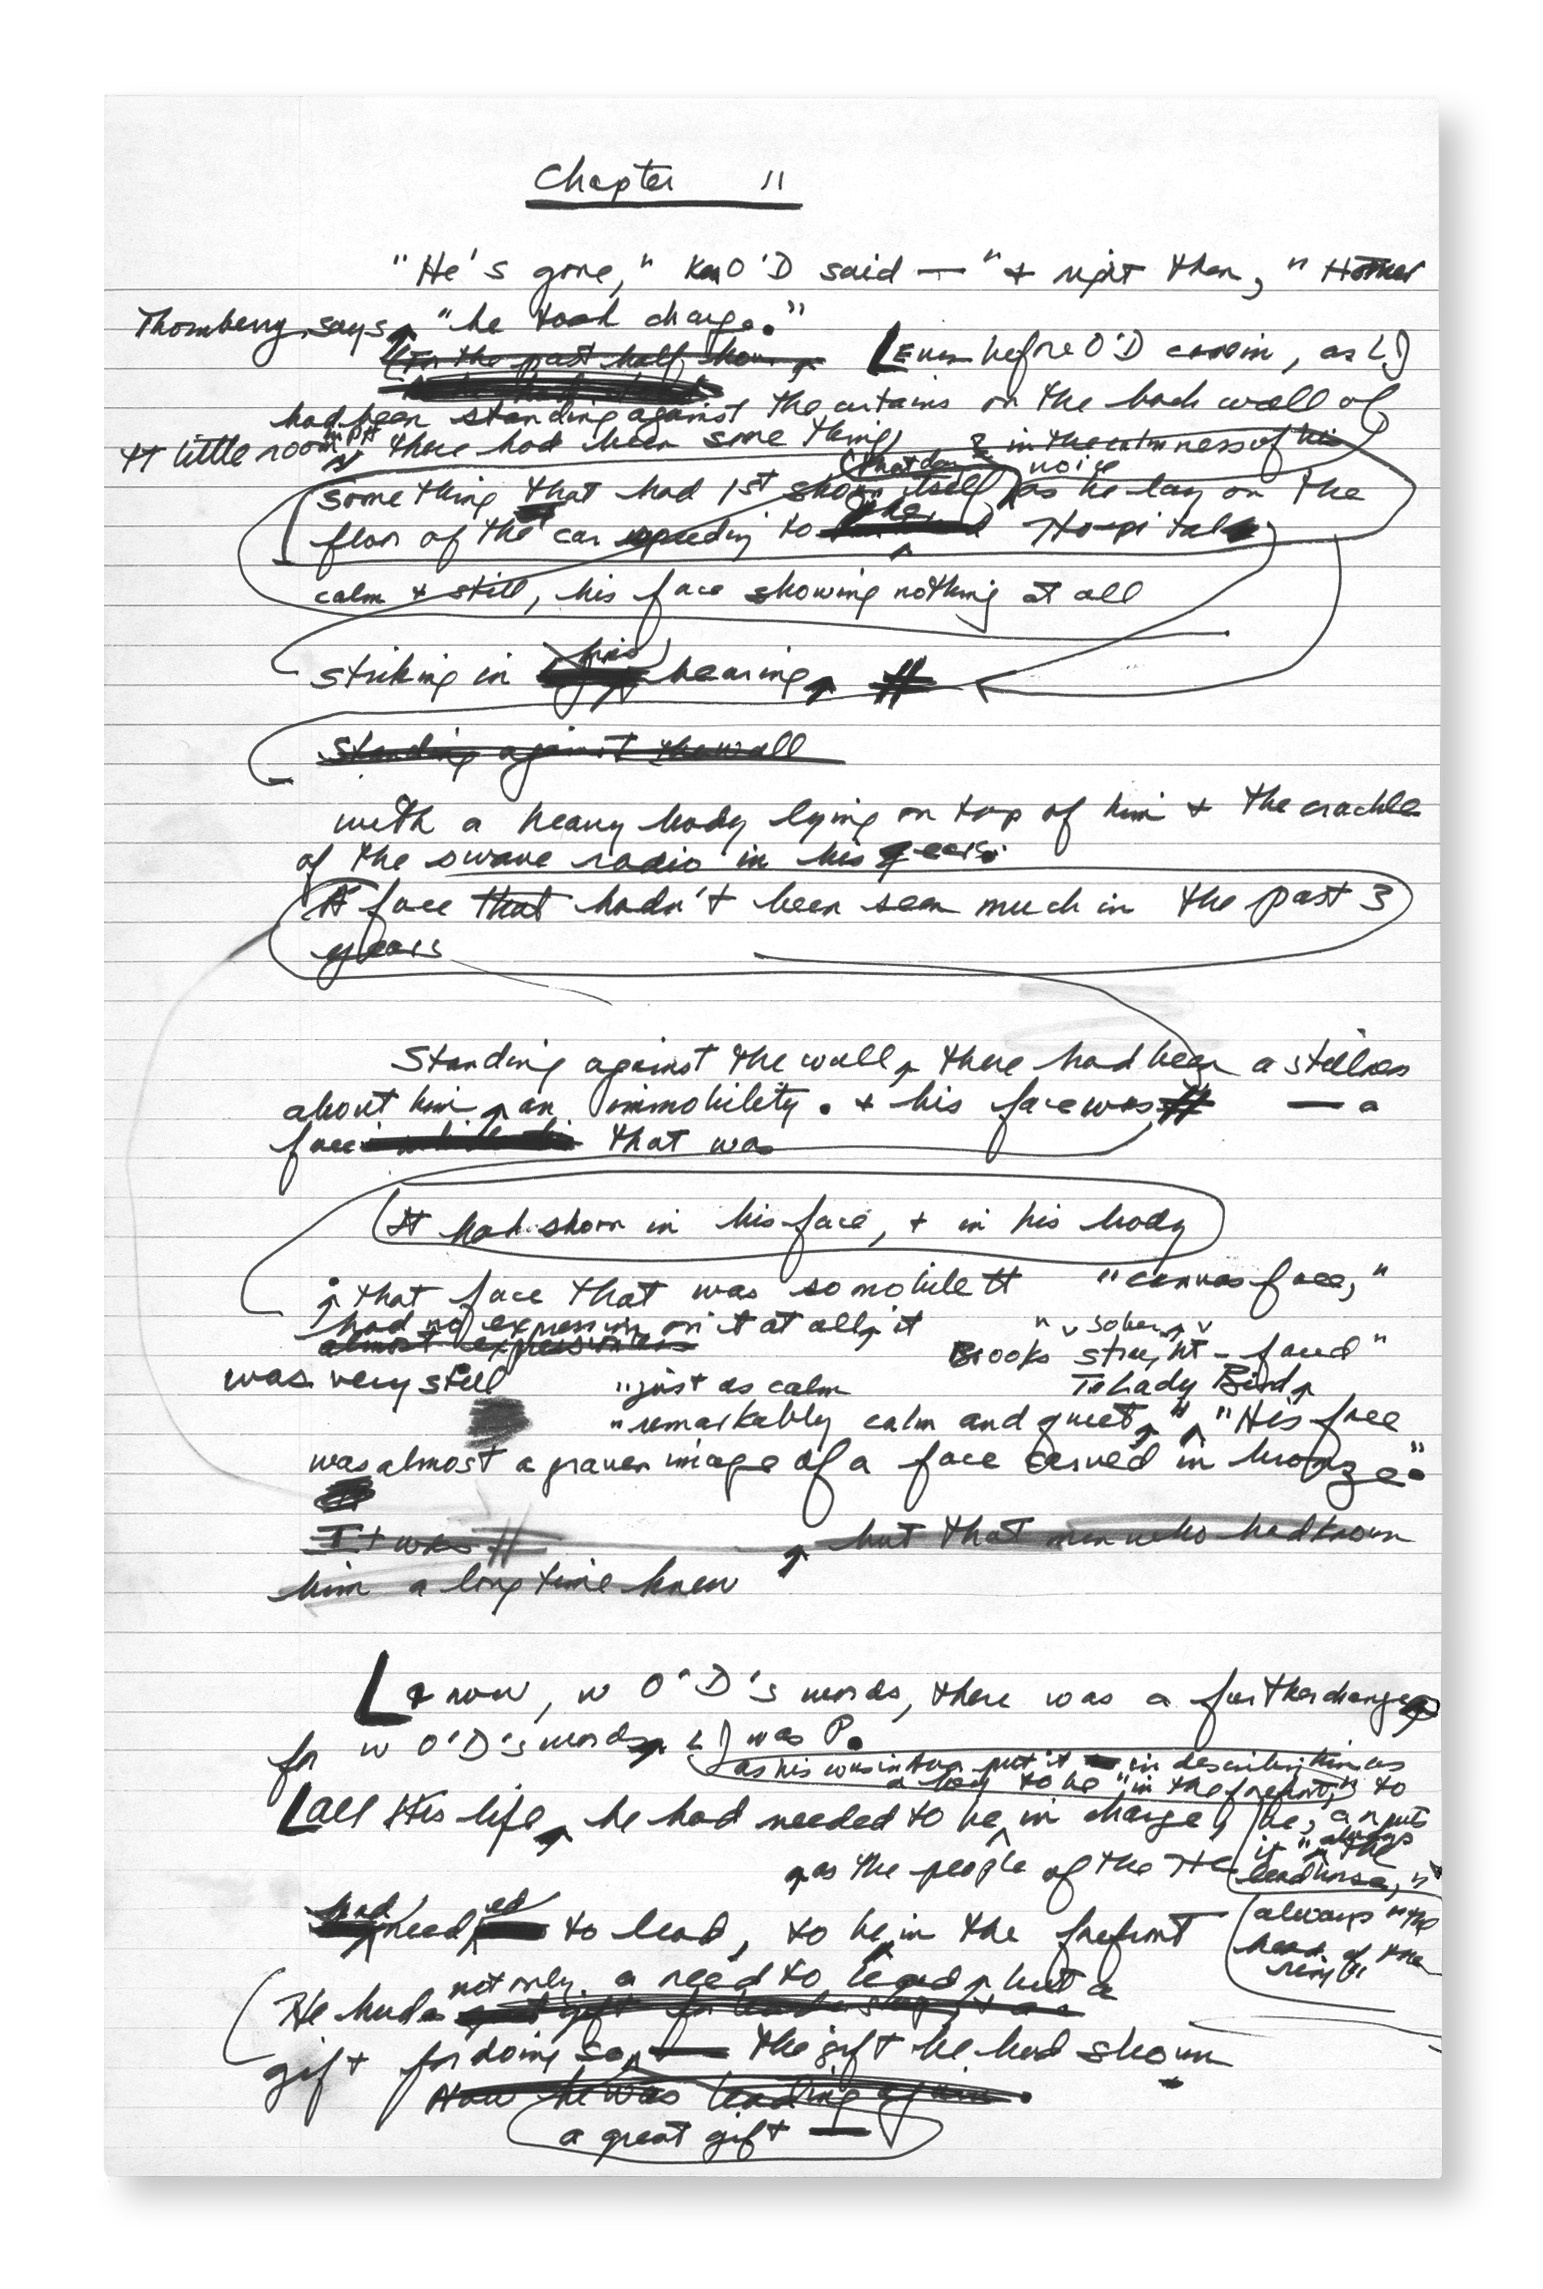 Chapter 11
"He's gone," Ken O'D said — "+ right then," Homer
Thornberry says, "he took charge."
For the past half hour, Even before O'D came in, as LJ
had been standing against the curtains on the back wall of
tt little room in PH there had been something in the calmness of his
voice
something that had 1st shown itself that day as he lay on the
floor of the car speeding to the Hospital
calm + still, his face showing nothing at all
striking in his bearing,
Standing against the wall
with a heavy body lying on top of him + the crackle
of the swave radio in his ears.
A face that hadn't been seen much in the past 3
years
Standing against the wall, there had been a stillness
about him, an immobility. + his face was — a
face that was
It had shown in his face, + in his body
; that face that was so mobile tt "canvas face,"
had no expression on it at all, it "sober,
almost expressionless Brooks straight-faced"
was very still "just as calm To Lady Bird,
"remarkably calm and quiet," "His face
was almost a graven image of a face carved in bronze."
It was , but that men who had known
him a long time knew
+ now, w O'D's words, there was a further change
for w O'D's words, LJ was P.
as his cousin Ava put it in describing him as
a boy to be "in the forefront," to
All His life, he had needed to be in charge, be, as a put
it "always the
as the people of the H lead horse,"
had needed to lead, to be in the forefront always "the
head of the
ring"
not only a need to lead, but a
He had a great gift for leadership, it a
gift for doing so, — the gift he had shown
Now he was leading again.
a great gift —